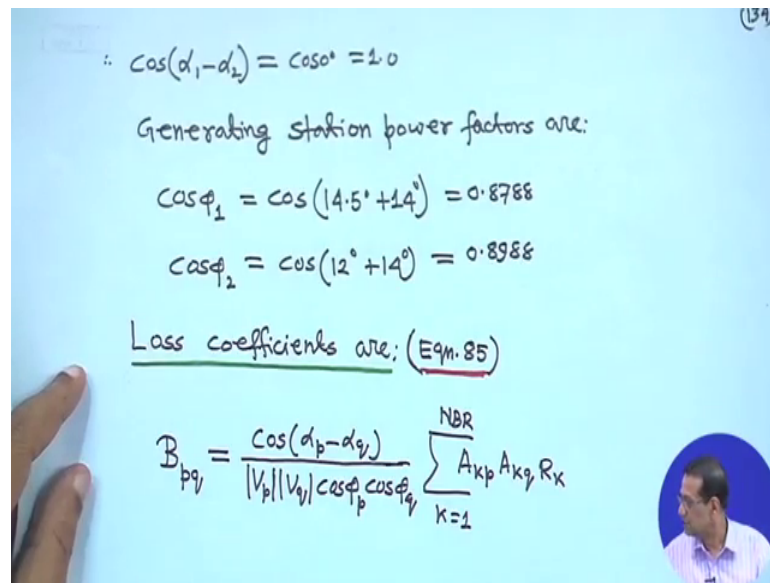 (139
∴ cos(α₁-α₂) = cos0° = 1.0
Generating station power factors are:
cosφ₁ = cos(14.5° + 14°) = 0.8788
cosφ₂ = cos(12° + 14°) = 0.8988
Loss coefficients are: (Eqn. 85)
B_pq = cos(α_p-α_q) / |V_p||V_q| cosφ_p cosφ_q ∑_{K=1}^{NBR} A_Kp A_Kq R_K